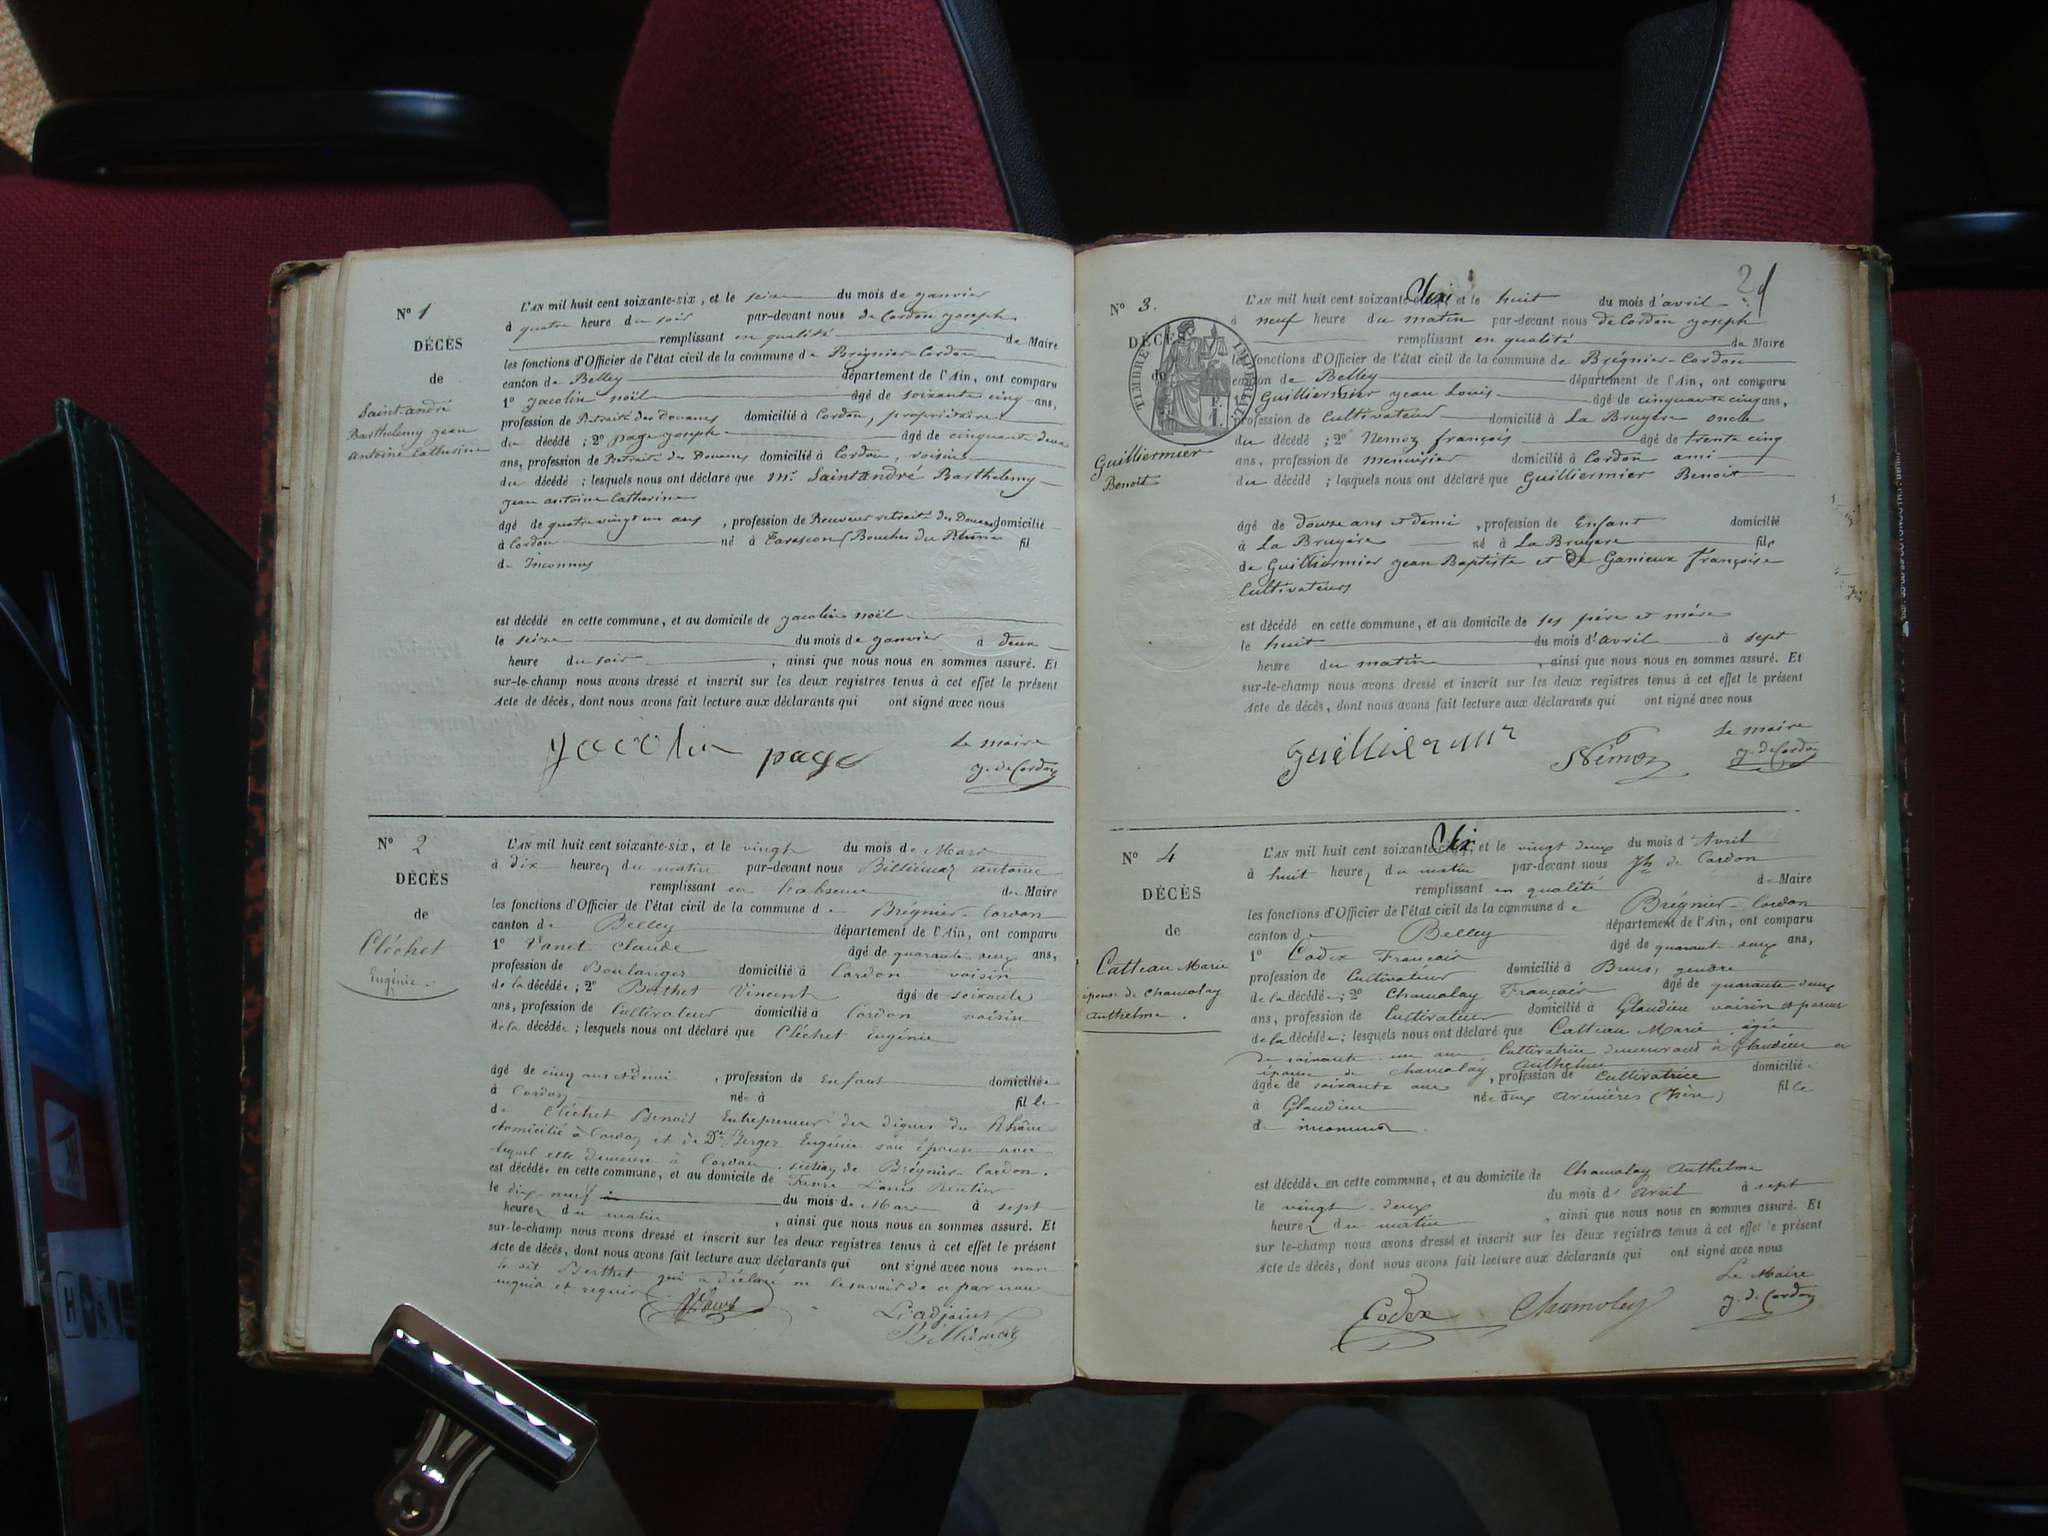 N° 1
DÉCÈS
de
Saint andré
Barthelemy jean
antoine Catherine
L'AN mil huit cent soixante-six, et le seize du mois de janvier
à quatre heure du soir par-devant nous de Cordon joseph
remplissant en qualité de Maire
les fonctions d'Officier de l'état civil de la commune de Brégnier-Cordon
canton de Belley département de l'Ain, ont comparu
1° Jacolin noël âgé de soixante cinq ans,
profession de Retraité des Douanes domicilié à Cordon, propriétaire
du décédé ; 2° page joseph âgé de cinquante deux
ans, profession de Retraité des Douanes domicilié à Cordon, voisin
du décédé ; lesquels nous ont déclaré que Mr. Saint andré Barthelemy
jean antoine Catherine
âgé de quatre vingt un ans, profession de Receveur retraité des Douanes domicilié
à Cordon né à Tarascon (Bouches du Rhône fil
de Inconnus
est décédé en cette commune, et au domicile de jacolin noël
le seize du mois de janvier à deux
heure du soir, ainsi que nous nous en sommes assuré. Et
sur-le-champ nous avons dressé et inscrit sur les deux registres tenus à cet effet le présent
Acte de décès, dont nous avons fait lecture aux déclarants qui ont signé avec nous
Jacolin page Le maire
J. de Cordon
N° 2
DÉCÈS
de
Cléchet
Eugénie
L'AN mil huit cent soixante-six, et le vingt du mois de Mars
à dix heures du matin par-devant nous Billiémaz antoine
remplissant en l'absence du Maire
les fonctions d'Officier de l'état civil de la commune de Brégnier-Cordon
canton de Belley département de l'Ain, ont comparu
1° Vanet Claude âgé de quarante-deux ans,
profession de Boulanger domicilié à Cordon voisin
de la décédée ; 2° Berthet Vincent âgé de soixante
ans, profession de Cultivateur domicilié à Cordon voisin
de la décédée ; lesquels nous ont déclaré que Cléchet Eugénie
âgé de cinq ans et demi, profession de Enfant domiciliée
à Cordon née à fille
de Cléchet Benoit Entrepreneur des digues du Rhône
domicilié à Cordon et de De Berger Eugénie son épouse avec
lequel elle demeure à Cordon section de Brégnier-Cordon.
est décédée en cette commune, et au domicile de Louis Rentier
le dix-neuf du mois de Mars à sept
heures du matin, ainsi que nous nous en sommes assuré. Et
sur-le-champ nous avons dressé et inscrit sur les deux registres tenus à cet effet le présent
Acte de décès, dont nous avons fait lecture aux déclarants qui ont signé avec nous non
le dit Berthet qui a déclaré ne le savoir de ce par nous
enquis et requis
L'adjoint
Billiémaz
2
N° 3.
DÉCÈS
de
TIMBRE IMPÉRIAL
Guilliermier
Benoit
L'AN mil huit cent soixante Six et le huit du mois d'avril
à neuf heure du matin par-devant nous de Cordon joseph
remplissant en qualité de Maire
les fonctions d'Officier de l'état civil de la commune de Brégnier-Cordon
canton de Belley département de l'Ain, ont comparu
Guilliermier jean Louis âgé de cinquante cinq ans,
profession de Cultivateur domicilié à La Bruyère oncle
du décédé ; 2° Nemoz françois âgé de trente cinq
ans, profession de menuisier domicilié à Cordon ami
du décédé ; lesquels nous ont déclaré que Guilliermier Benoit
âgé de douze ans et demi, profession de Enfant domicilié
à La Bruyère né à La Bruyere fils
de Guilliermier jean Baptiste et de Ganieux françoise
Cultivateurs
est décédé en cette commune, et au domicile de ses père et mère
le huit du mois d'avril à sept
heure du matin, ainsi que nous nous en sommes assuré. Et
sur-le-champ nous avons dressé et inscrit sur les deux registres tenus à cet effet le présent
Acte de décès, dont nous avons fait lecture aux déclarants qui ont signé avec nous
Guilliermier Némoz Le maire
J. de Cordon
N° 4
DÉCÈS
de
Catteau Marie
épouse de Chamolay
Anthelme.
L'AN mil huit cent soixante Six, et le vingt deux du mois d'Avril
à huit heures du matin par-devant nous Jh de Cordon
remplissant en qualité de Maire
les fonctions d'Officier de l'état civil de la commune de Brégnier-Cordon
canton de Belley département de l'Ain, ont comparu
1° Codex Français âgé de quarante-deux ans,
profession de Cultivateur domicilié à gendre
de la décédée ; 2° Chamolay Français âgé de quarante deux
ans, profession de Cultivateur domicilié à Glandieu voisin et parent
de la décédée ; lesquels nous ont déclaré que Catteau Marie âgée
de soixante un ans Cultivatrice demeurant à Glandieu et
épouse de Chamolay Anthelme
âgée de soixante ans, profession de Cultivatrice domicilié
à Glandieu née aux Avenières (Isère) fille
de inconnus
est décédée en cette commune, et au domicile de Chamolay Anthelme
le vingt-deux du mois d'Avril à sept
heures du matin, ainsi que nous nous en sommes assuré. Et
sur le-champ nous avons dressé et inscrit sur les deux registres tenus à cet effet le présent
Acte de décès, dont nous avons fait lecture aux déclarants qui ont signé avec nous
Codex Chamolay Le Maire
J. de Cordon